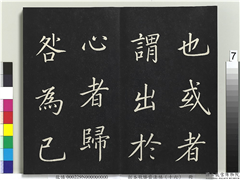 也或者
謂出於
心者歸
咎為已
7